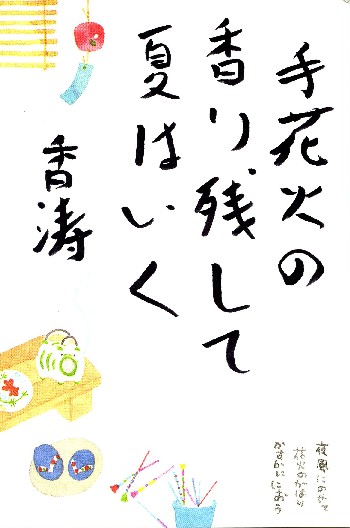 手花火の
香り残して
夏はいく
香涛
夜風にのせて
花火のかほり
かすかににおう